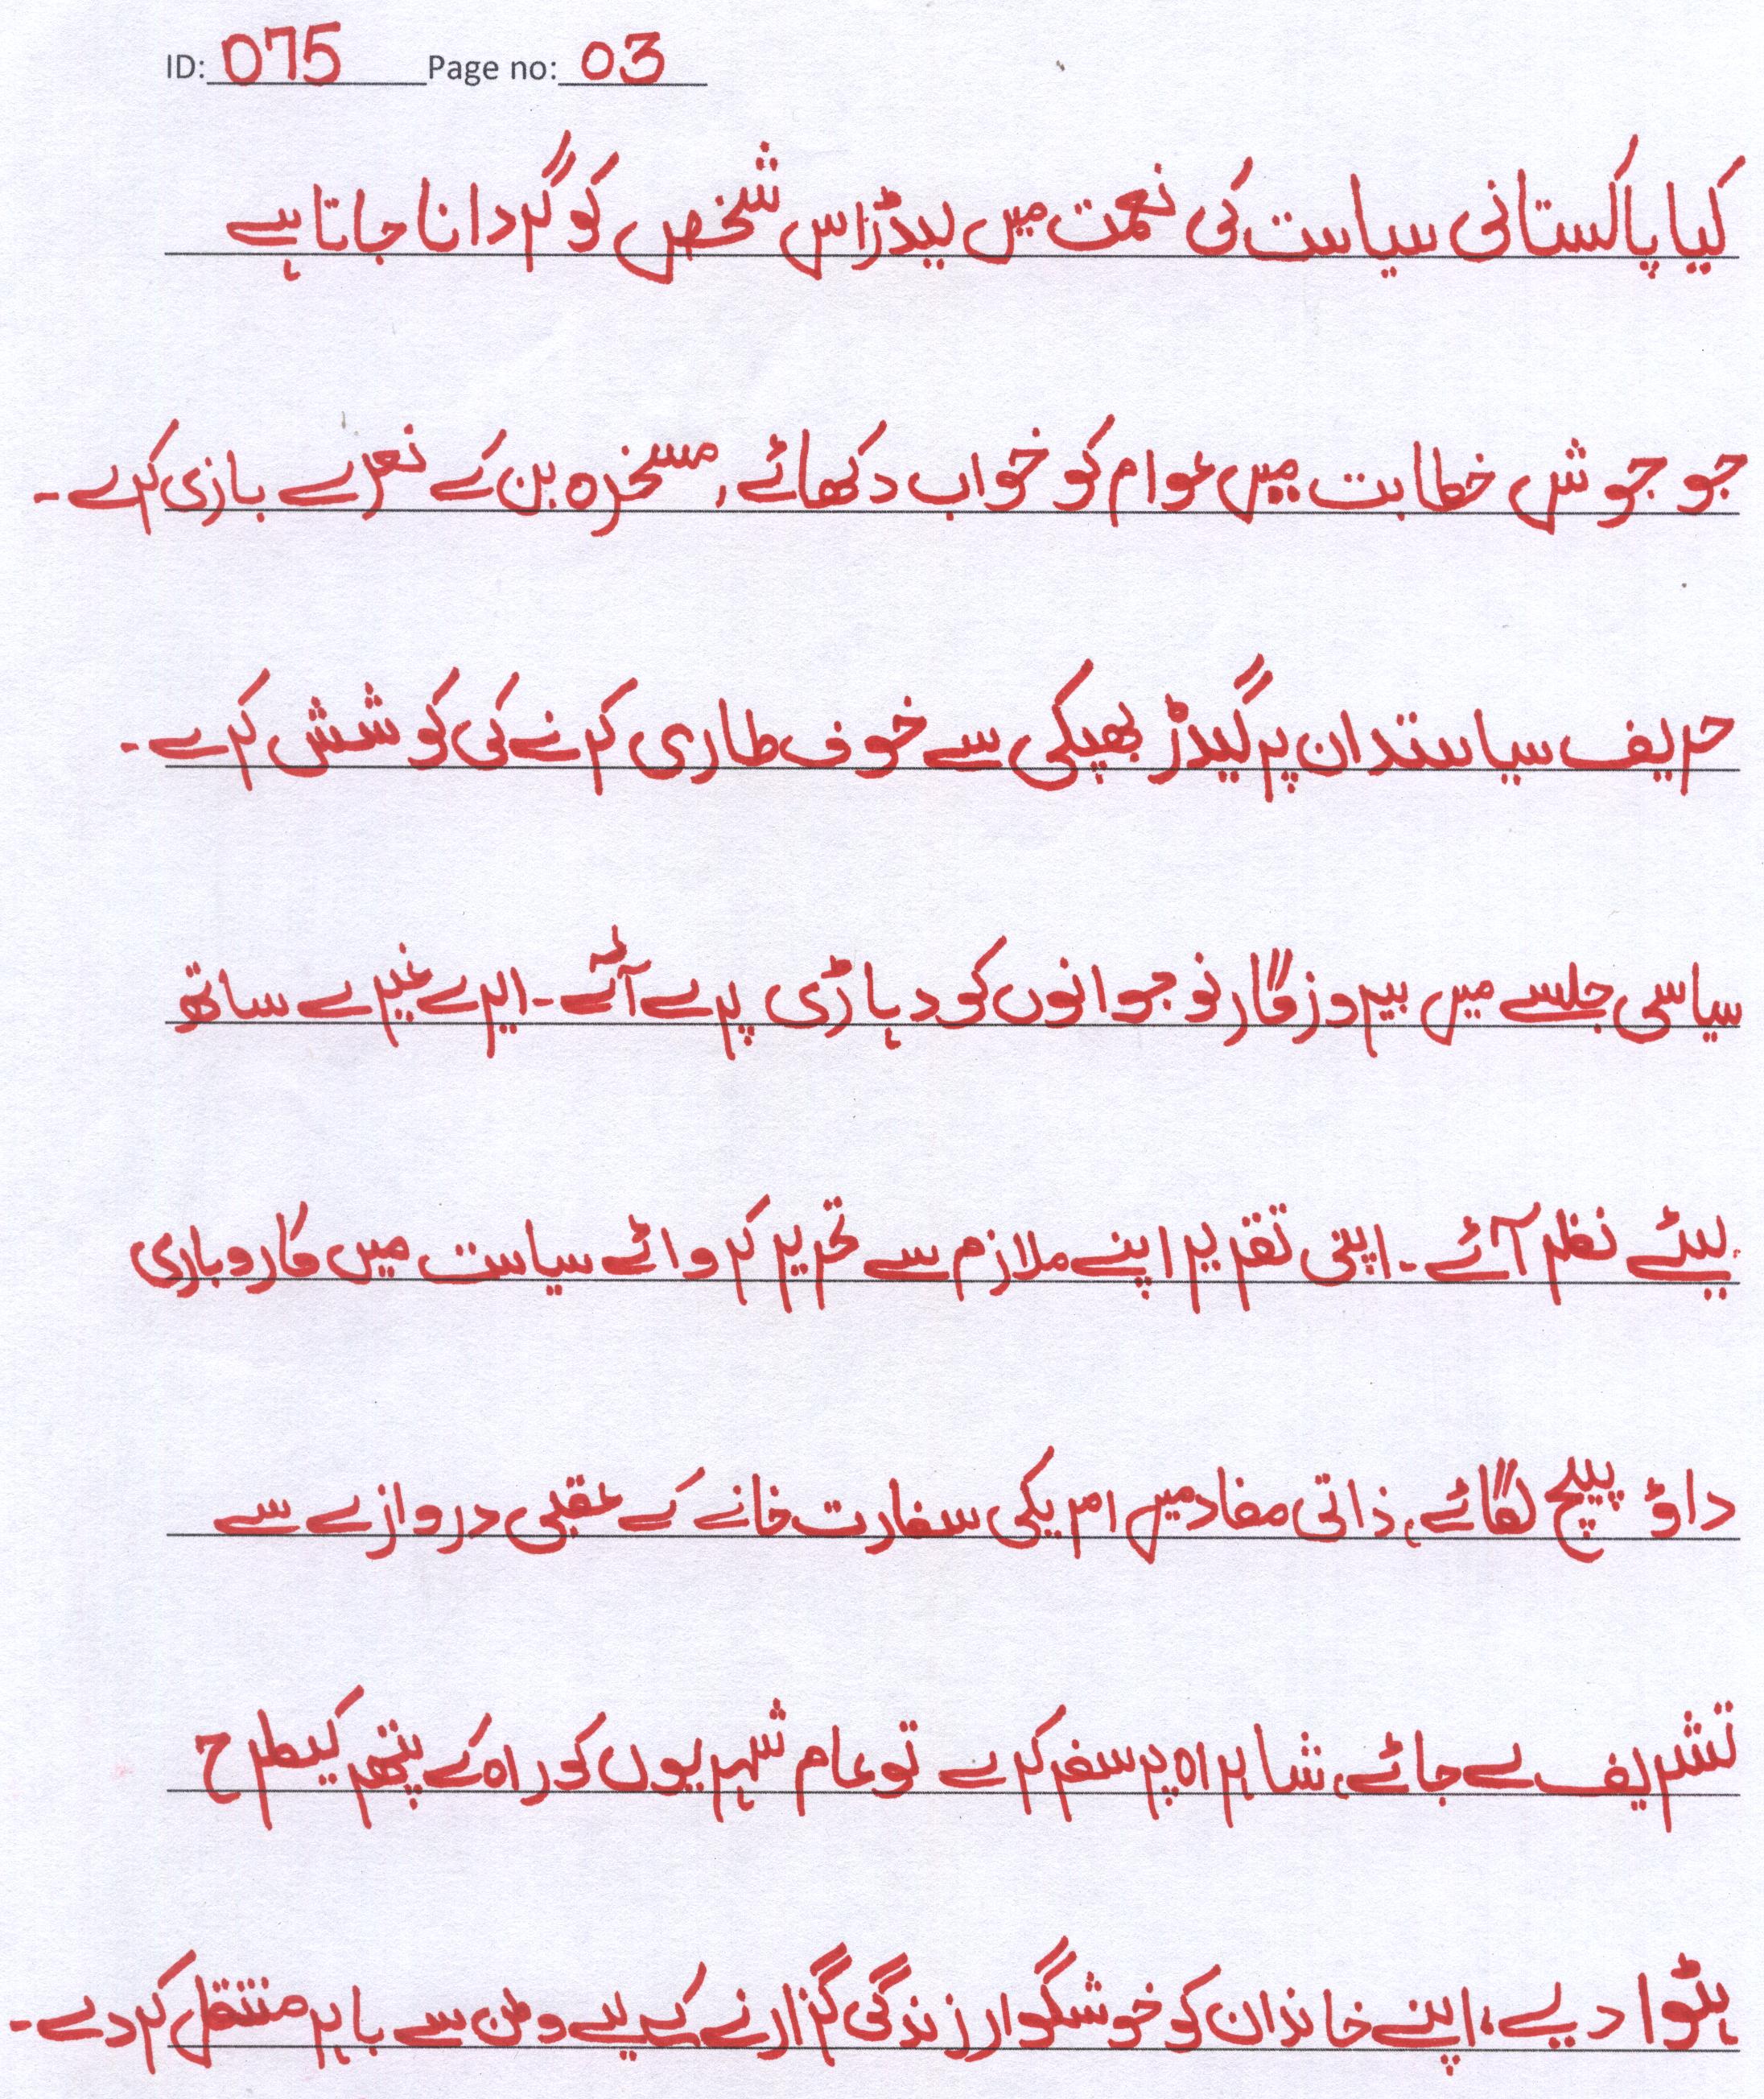 ID: 075 Page no: 03
کیا پاکستانی سیاست کی نعمت میں لیڈر اس شخص کو گردانا جاتا ہے
جو جوش خطابت میں عوام کو خواب دکھائے، مسخرہ بن کے نعرے بازی کرے۔
حریف سیاستدان پر گیدڑ بھپکی سے خوف طاری کرنے کی کوشش کرے۔
سیاسی جلسے میں بیروزگار نوجوانوں کو دہاڑی پر لے آئے۔ ایرے غیرے ساتھ
لیئے نظر آئے۔ اپنی تقریر اپنے ملازم سے تحریر کروائے سیاست میں کاروباری
داؤ پیچ لگائے، ذاتی مفاد میں امریکی سفارت خانے کے عقبی دروازے سے
تشریف لے جائے، شاہراہ پر سفر کرے تو عام شہریوں کو راہ کے پتھر کیطرح
ہٹوا دیے، اپنے خاندان کو خوشگوار زندگی گزارنے کے لیے وطن سے باہر منتقل کردے۔